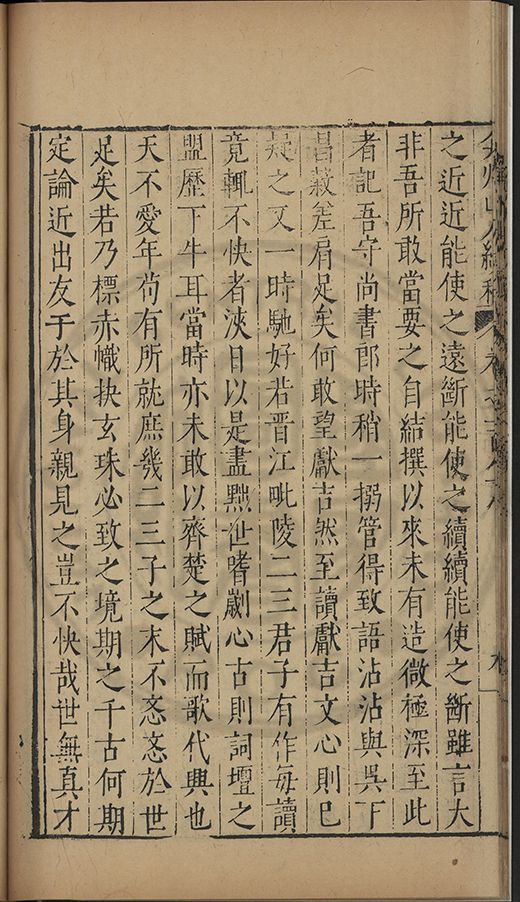 弇州山人續稿 卷之二百六
之近近能使之遠斷能使之續續能使之斷雖言大
非吾所敢當要之自結撰以來未有造微極深至此
者記吾守尚書郎時稍一搦管得致語沾沾與吳下
昌榖差肩足矣何敢望獻吉然至讀獻吉文心則已
疑之又一時馳好若晋江毗陵二三君子有作每讀
竟輒不快者浹日以是盡黜世嗜劌心古則詞壇之
盟歷下牛耳當時亦未敢以齊楚之賦而歌代興也
天不愛年苟有所就庶幾二三子之末不忞忞於世
足矣若乃標赤幟抉玄珠必致之境期之千古何期
定論近出友于於其身親見之豈不快哉世無真才